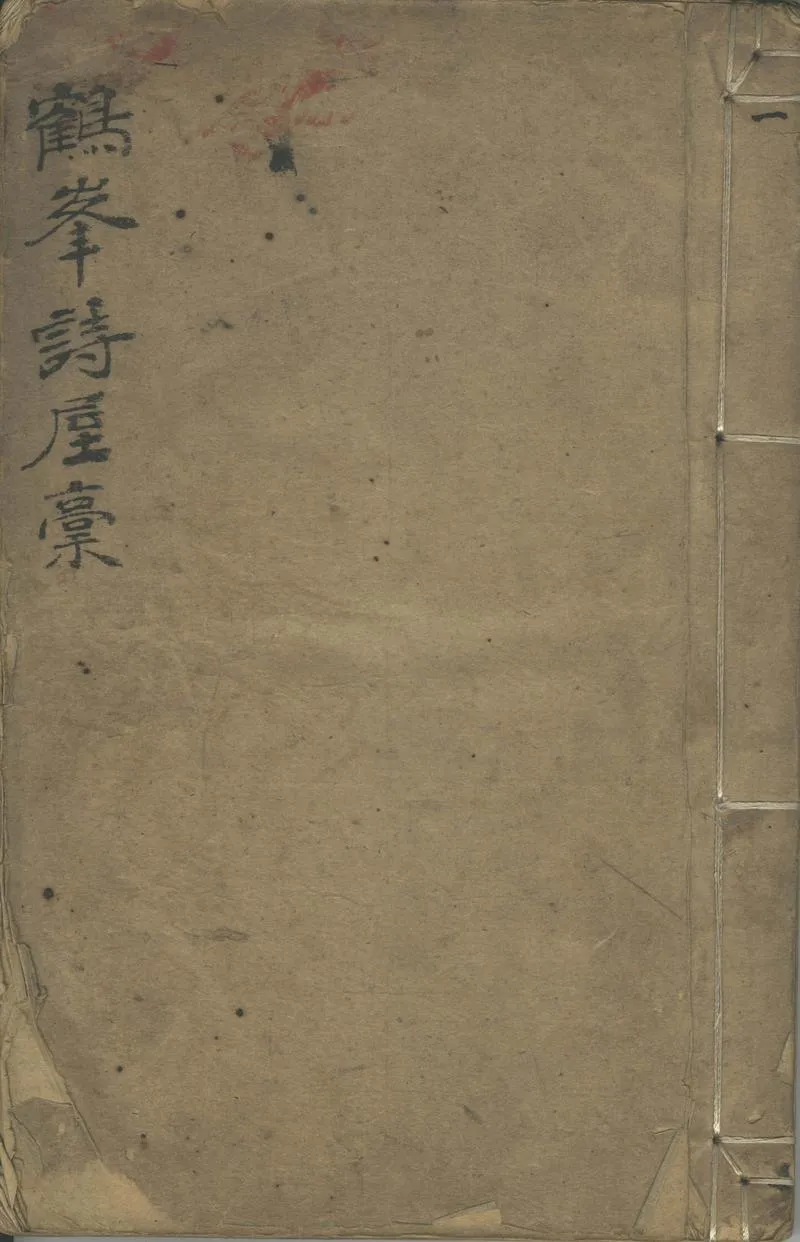 一
鶴峯詩屋稾